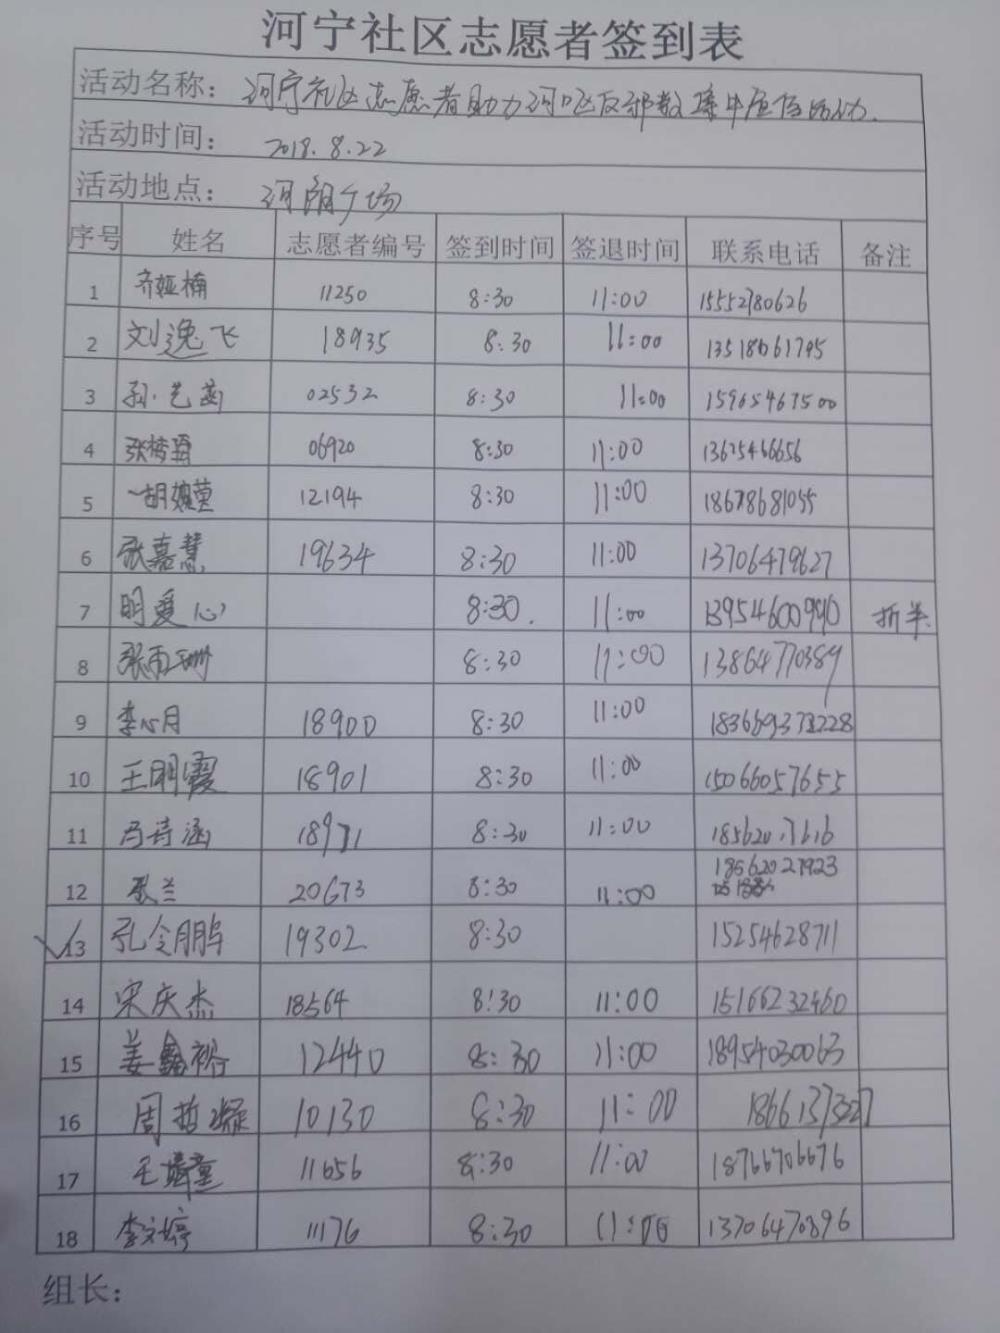 河宁社区志愿者签到表
活动名称：河宁社区志愿者助力河口区反邪教集中宣传活动.
活动时间：2018.8.22
活动地点：河阳广场
序号 姓名 志愿者编号 签到时间 签退时间 联系电话 备注
1 齐娅楠 11250 8:30 11:00 15552780626
2 刘逸飞 18935 8:30 11:00
3 孙艺菡 02532 8:30 11:00 15965467500
4 张梦 06920 8:30 11:00 13625466656
5 胡婉莹 12194 8:30 11:00 18678681055
6 张嘉慧 19634 8:30 11:00 13706479627
7 明爱心 8:30. 11:00 13954600990 折半.
8 张雨珊 8:30 11:00 13864770389
9 李心月 18900 8:30 11:00
10 王明霞 18901 8:30 11:00 15066057655
11 冯诗涵 18971 8:30 11:00
12 张兰 20673 8:30 11:00 18562027923
13 孔令鹏 19302 8:30 15254628711
14 宋庆杰 18564 8:30 11:00 15166232460
15 姜鑫裕 12440 8:30 11:00 18954030063
16 周哲凝 10130 8:30 11:00
17 王 童 11656 8:30 11:00 18766706676
18 李文婷 11176 8:30 11:00 13706470896
组长：